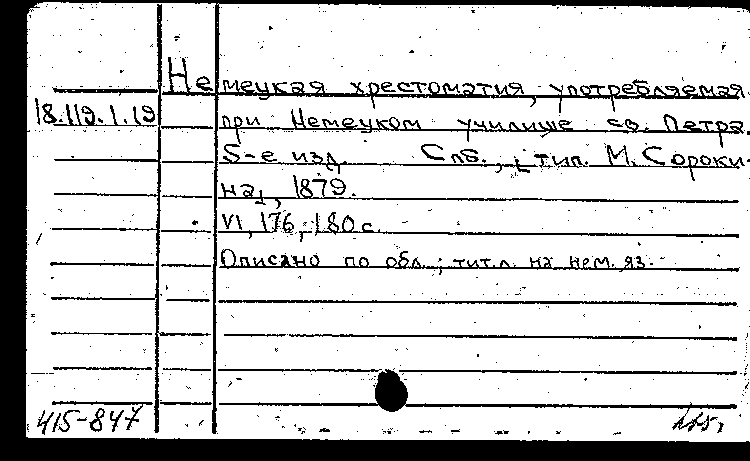 Немецкая хрестоматия, употребляемая
18.119.1.19 при Немецком училище св. Петра.
5-е изд. Спб., [тип. М. Сороки-
на], 1879.
VI, 176, 180 с.
Описано по обл.; тит.л. на нем. яз.
415-847